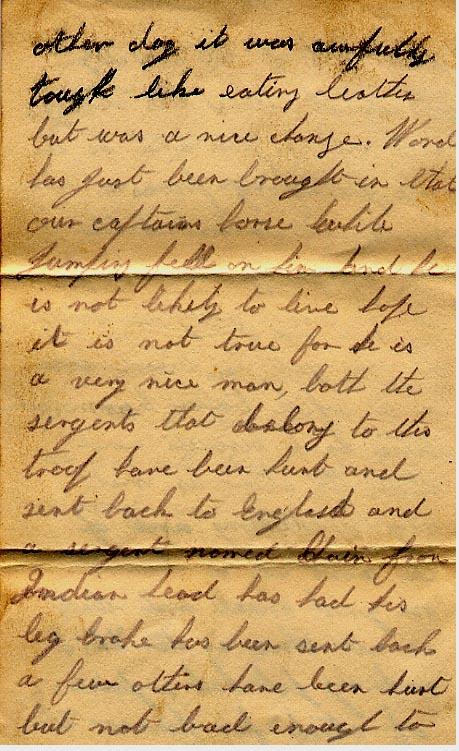 other day it was awfully
tough like eating leather
but was a nice change. Word
has just been brought in that
our captains horse while
jumping fell on him and he
is not likely to live hope
it is not true for he is
a very nice man, both the
sergents that belong to this
troop have been hurt and
sent back to England and
a sergent named Blair from
Indian Head has had his
leg brake has been sent back
a few others have been hurt
but not bad enough to